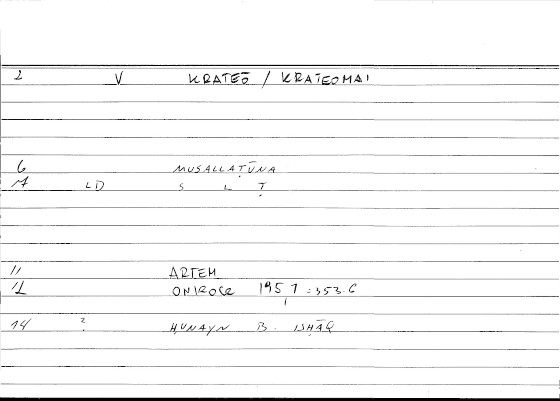 2 V KRATEŌ / KRATEOMAI
6 MUSALLAṬŪNA
7 LD S L Ṭ
11 ARTEM
12 ONIROCR 1957 :353.6
14 ? ḤUNAYN B. ISḤĀQ